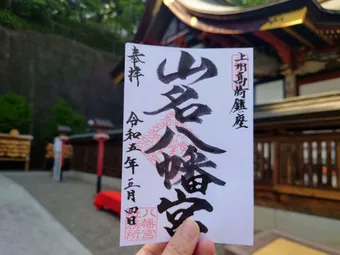 上州高崎鎮座
奉拝
山名八幡宮
令和五年三月四日
八幡宮